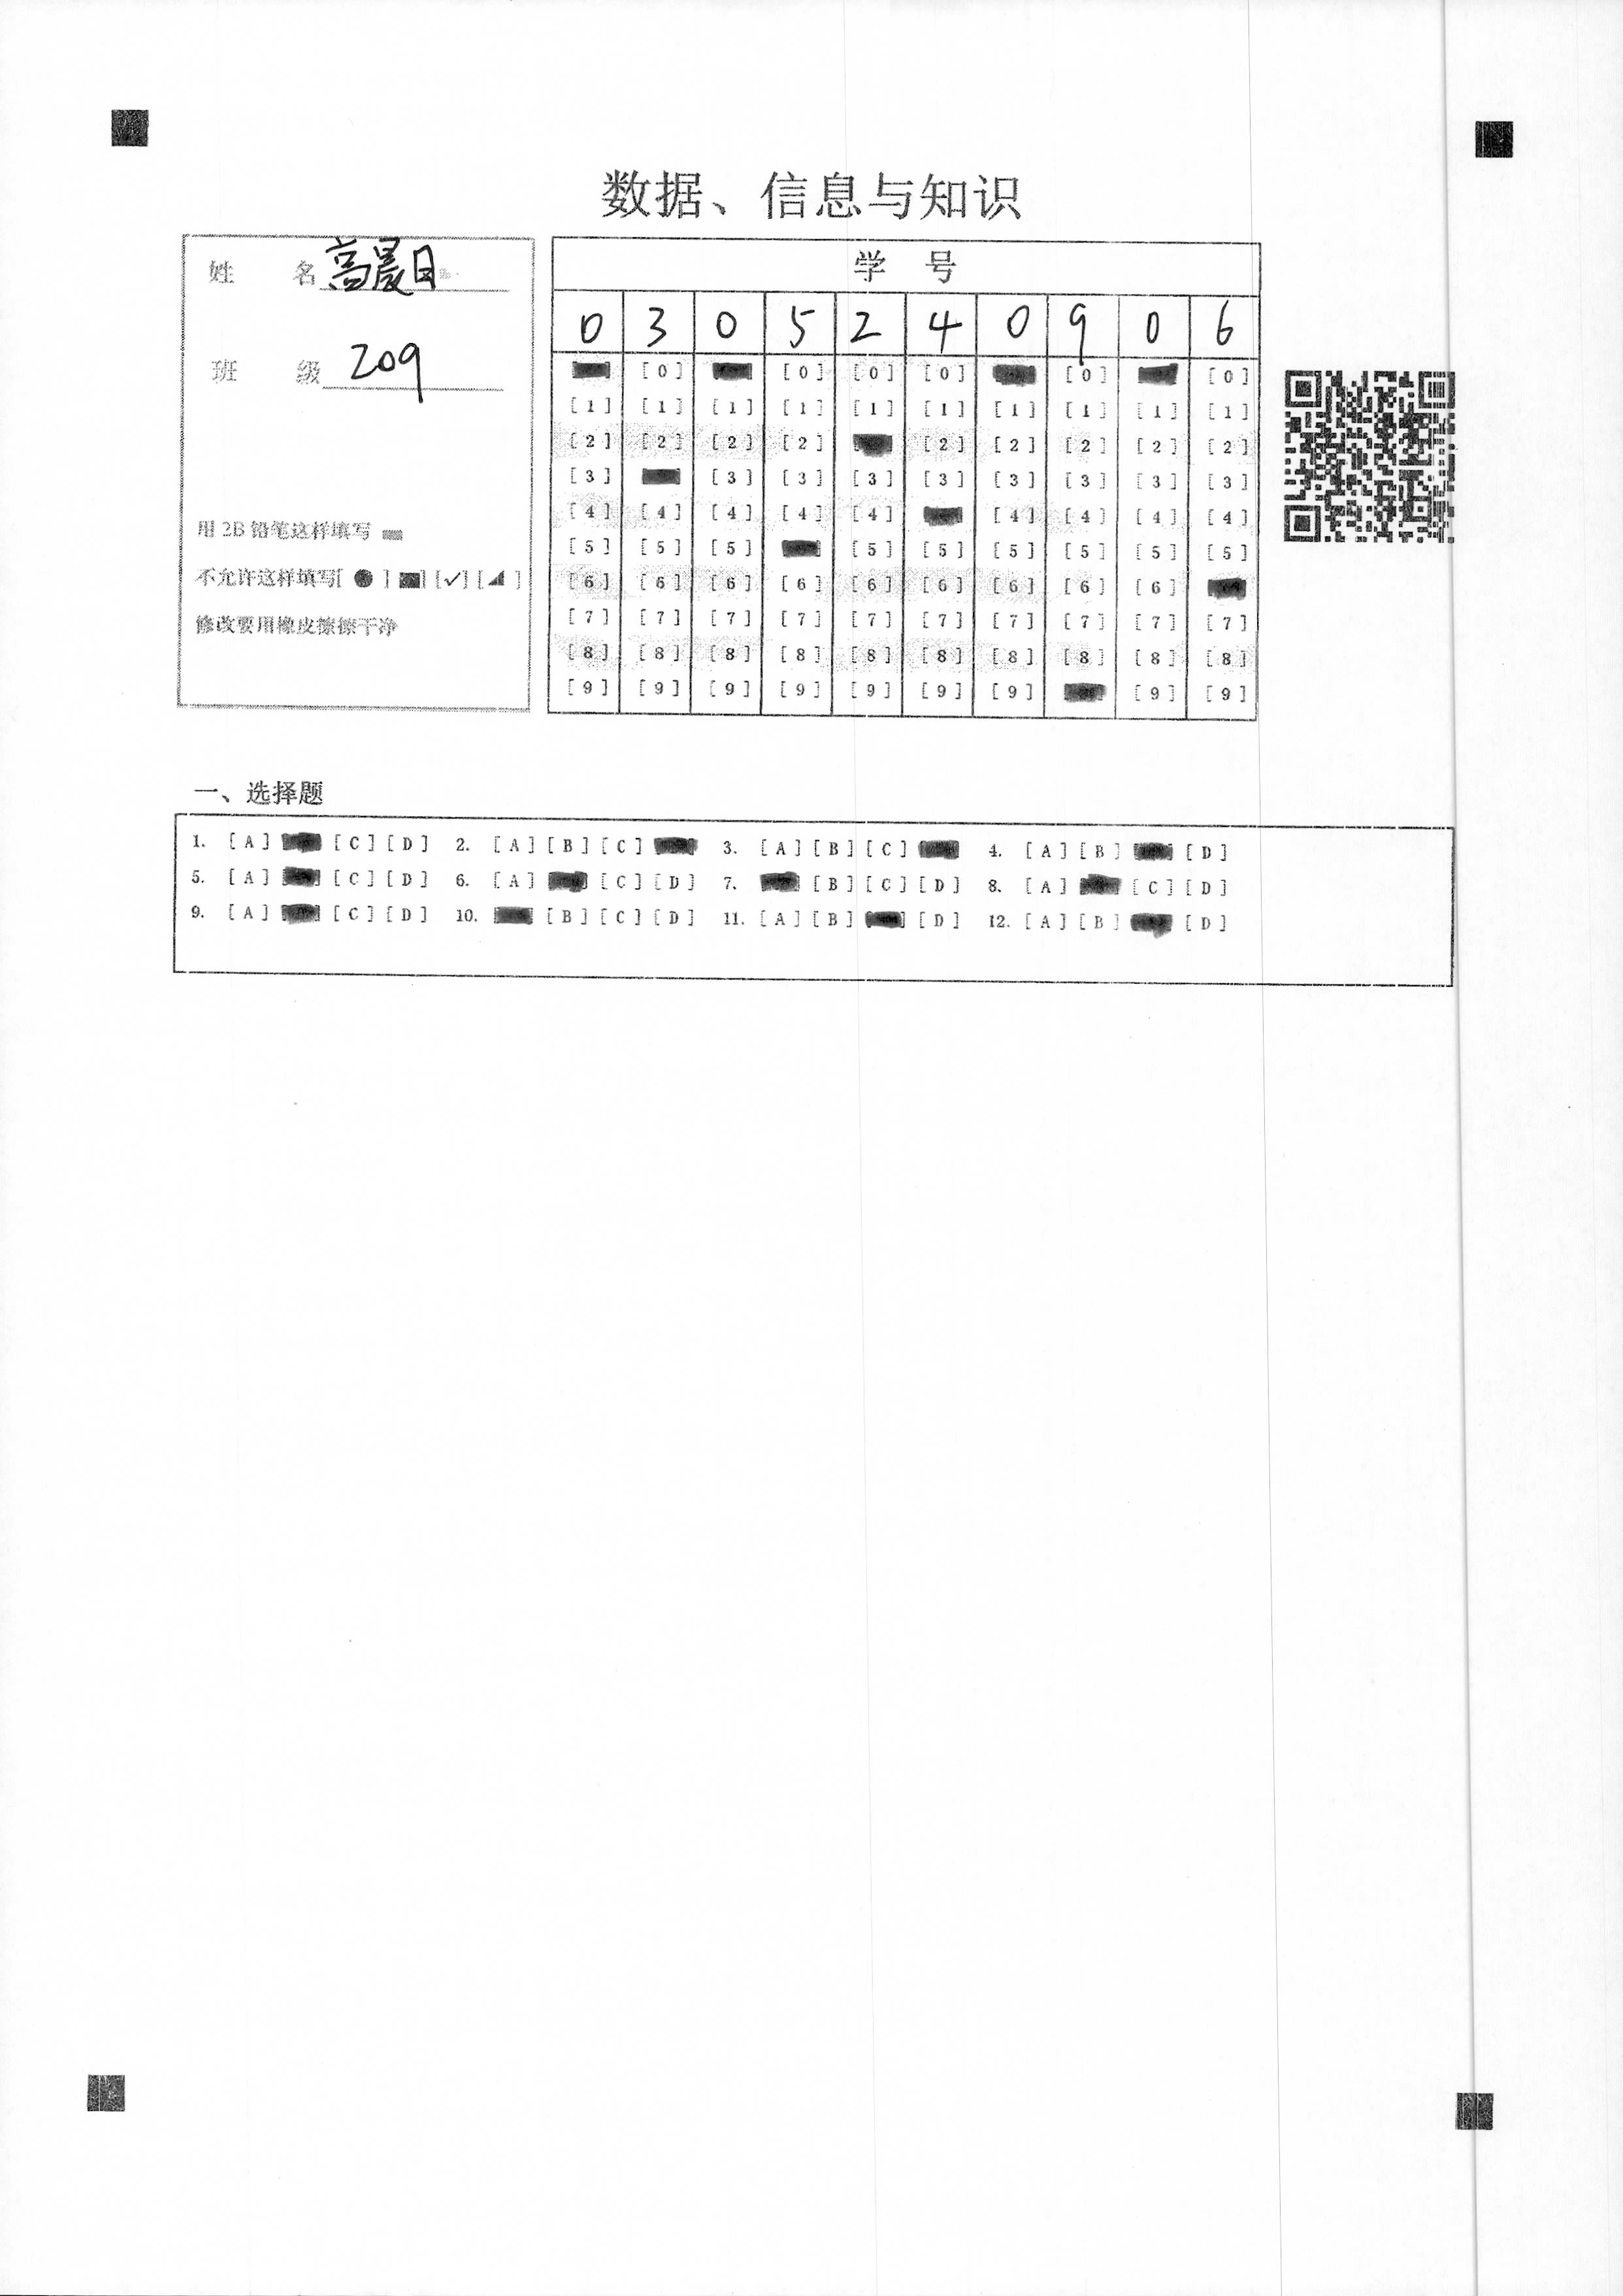 数据、信息与知识
姓 名 高晨日
班 级 209
用2B铅笔这样填写
不允许这样填写[ ● ] [■] [✓] [◢ ]
修改要用橡皮擦擦干净
学 号
0 3 0 5 2 4 0 9 0 6
[0] [0] [0] [0] [0] [0]
[1] [1] [1] [1] [1] [1] [1] [1] [1] [1]
[2] [2] [2] [2] [2] [2] [2] [2] [2]
[3] [3] [3] [3] [3] [3] [3] [3] [3]
[4] [4] [4] [4] [4] [4] [4] [4] [4]
[5] [5] [5] [5] [5] [5] [5] [5] [5]
[6] [6] [6] [6] [6] [6] [6] [6] [6]
[7] [7] [7] [7] [7] [7] [7] [7] [7] [7]
[8] [8] [8] [8] [8] [8] [8] [8] [8] [8]
[9] [9] [9] [9] [9] [9] [9] [9] [9]
一、选择题
1. [A] [C] [D] 2. [A] [B] [C] 3. [A] [B] [C] 4. [A] [B] [D]
5. [A] [C] [D] 6. [A] [C] [D] 7. [B] [C] [D] 8. [A] [C] [D]
9. [A] [C] [D] 10. [B] [C] [D] 11. [A] [B] [D] 12. [A] [B] [D]